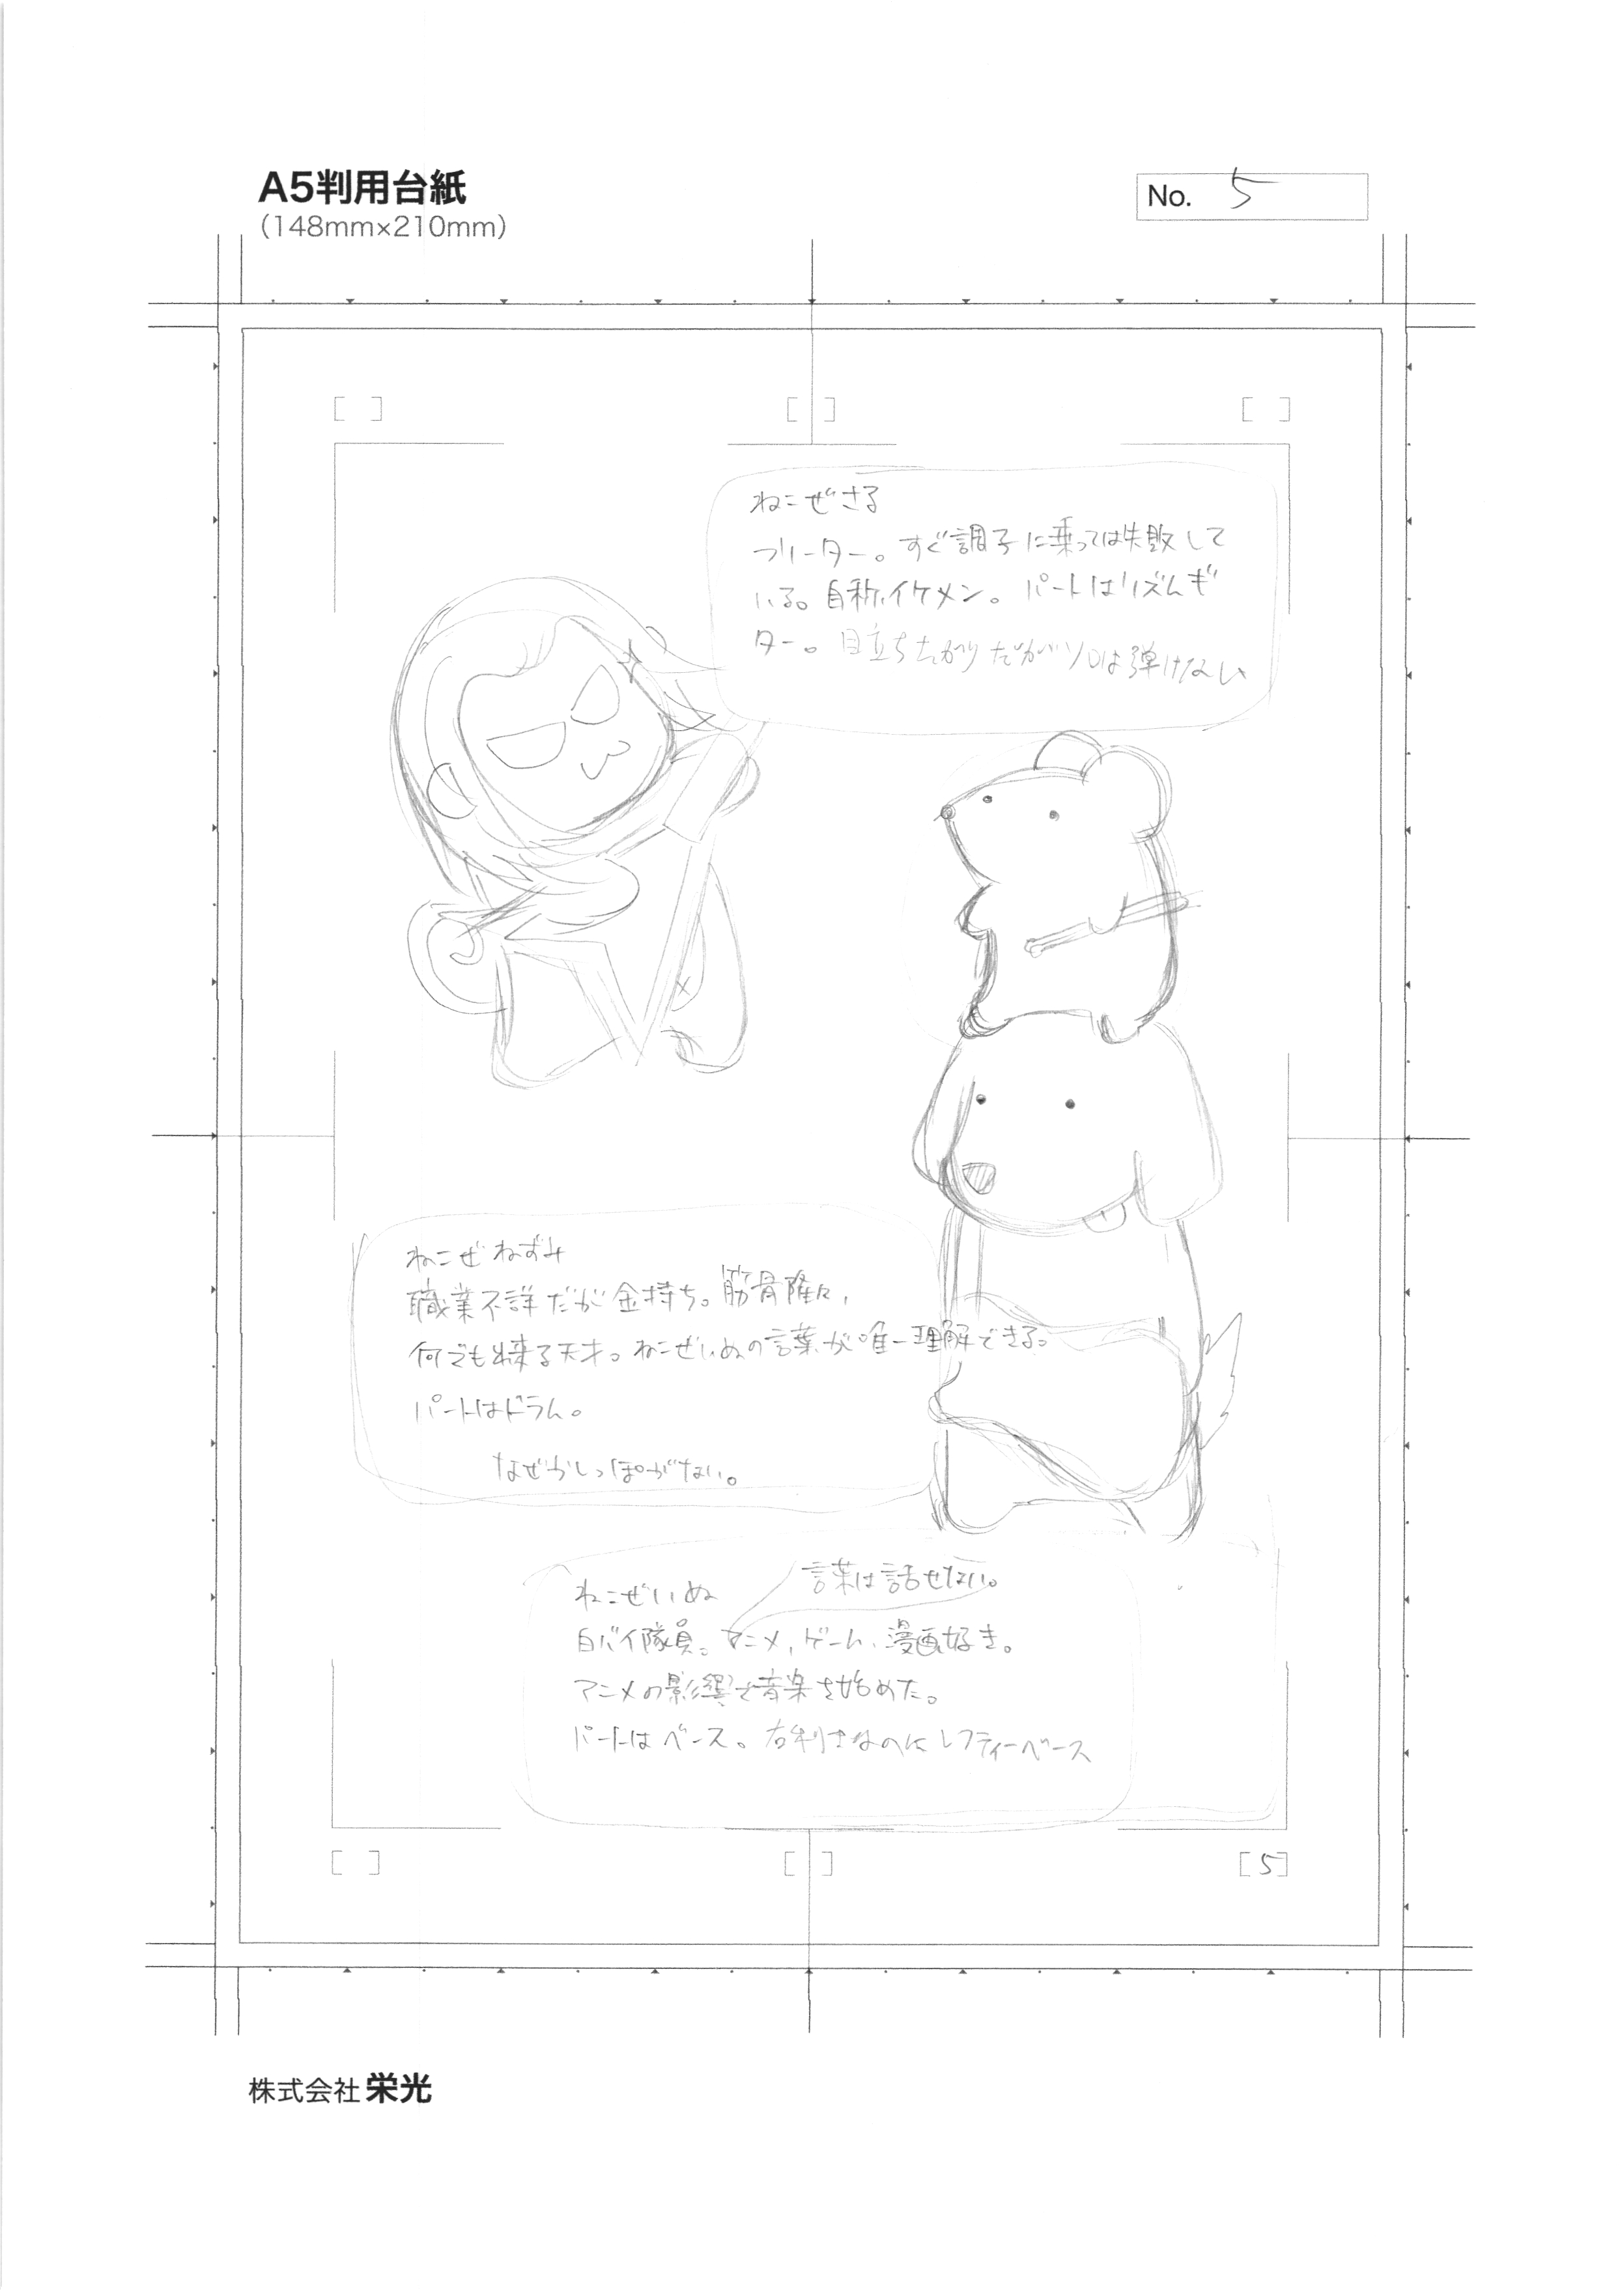 A5判用台紙
(148mm×210mm)
No. 5
ねこぜさる
フリーター。すぐ調子に乗っては失敗して
いる。自称イケメン。パートはリズムギ
ター。目立ちたがりだがソロは弾けない
ねこぜねずみ
職業不詳だが金持ち。筋骨隆々、
何でも出来る天才。ねこぜいぬの言葉が唯一理解できる。
パートはドラム。
なぜかしっぽがない。
言葉は話せない。
ねこぜいぬ
白バイ隊員。アニメ、ゲーム、漫画好き。
アニメの影響で音楽を始めた。
パートはベース。右利きなのにレフティーベース
[5]
株式会社 栄光